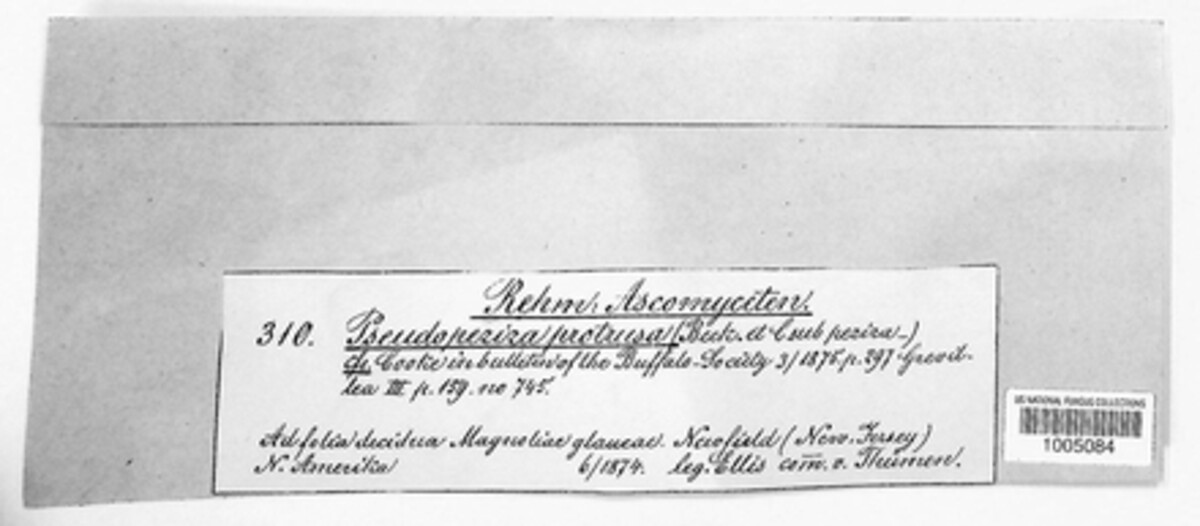 Rehm, Ascomyciten.
310. Pseudopeziza protrusa (Berk. et C sub peziza-)
Cooke in bulletin of the Buffalo-Society 3/1875 p. 297 Grevil-
lea III p. 159. no 745.
Ad folia decidua Magnoliae glaucae. Newfield (New. Jersey)
N. Amerika 6/1874. leg. Ellis com̅. v. Thümen.
US NATIONAL FUNGUS COLLECTIONS
1005084